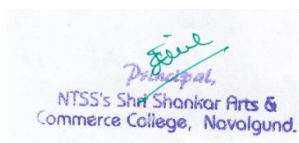 Principal,
NTSS's Shri Shankar Arts &
Commerce College, Navalgund.